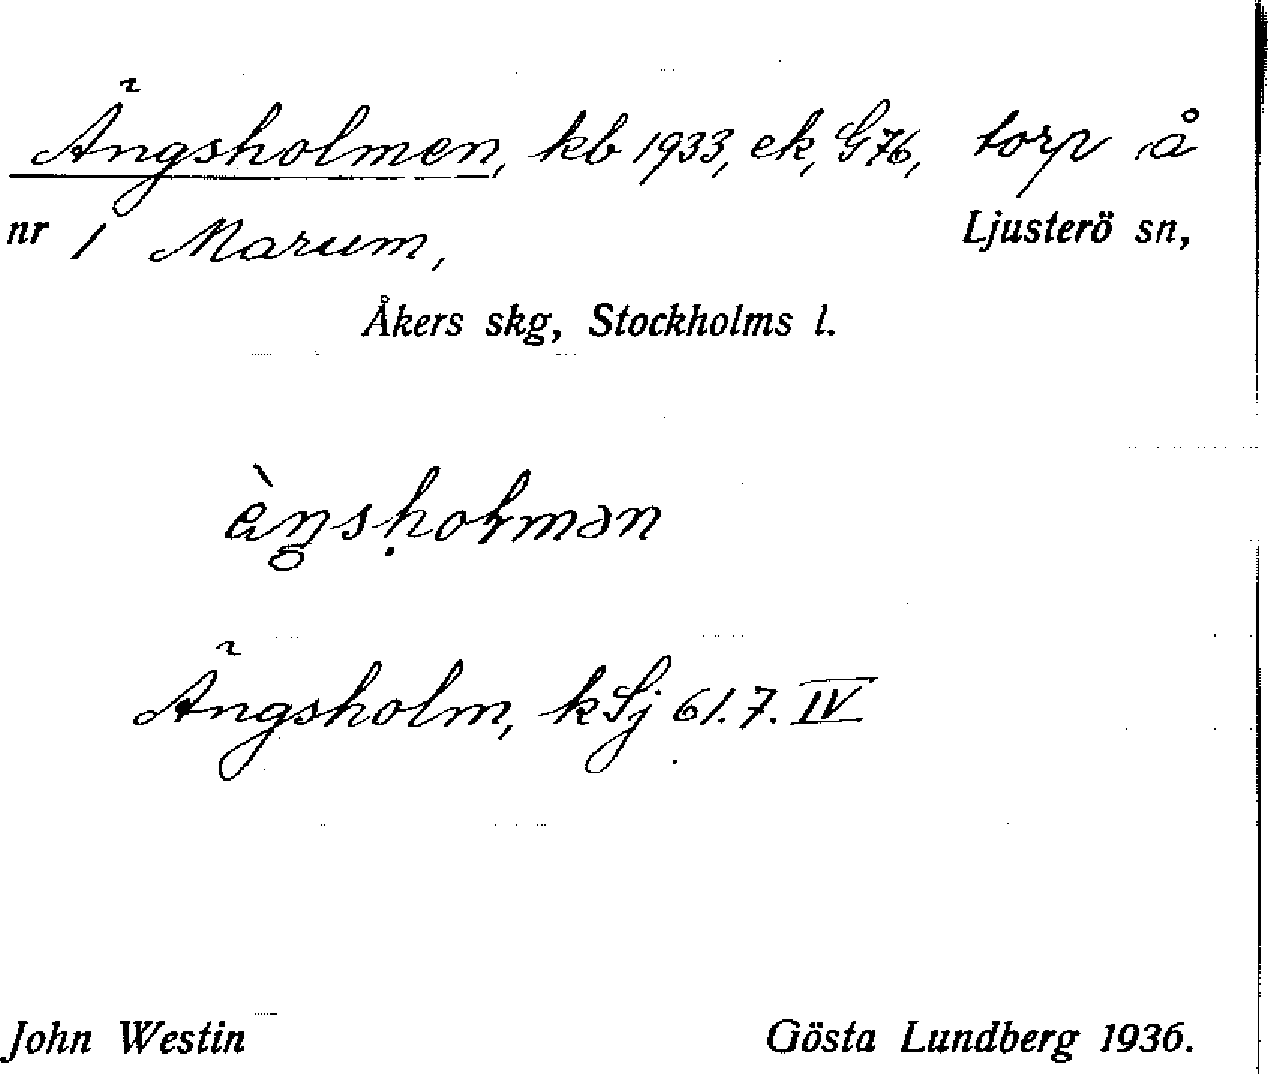 Ängsholmen, kb 1933, ek, G76, torp å
nr 1 Marum, Ljusterö sn,
Åkers skg, Stockholms l.
Ängsholm, kSj 61.7.IV
John Westin Gösta Lundberg 1936.